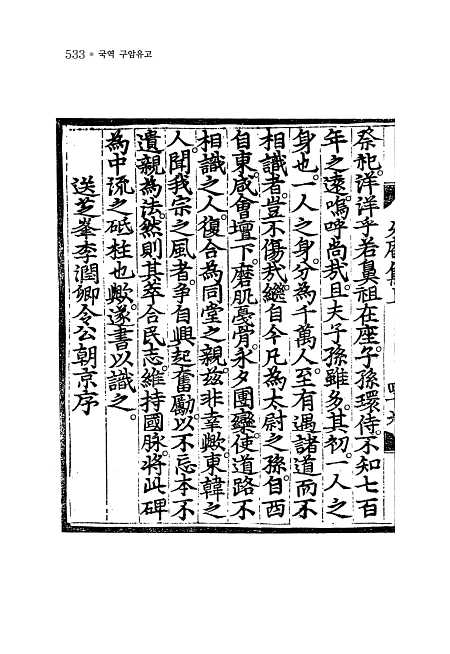 533 ● 국역 구암유고
祭祀。洋洋乎若鼻祖在座。子孫環侍。不知七百
年之遠。嗚呼尚哉。且夫子孫雖多。其初一人之
身也。一人之身。分為千萬人。至有遇諸道而不
相識者。豈不傷哉。繼自今凡為太尉之孫。自西
自東。咸會壇下。磨肌戛骨。永夕團欒。使道路不
相識之人。復合為同堂之親。茲非幸歟。東韓之
人聞我宗之風者。爭自興起奮勵。以不忘本不
遺親為法。然則其萃合民志。維持國脉。將此碑
為中流之砥柱也歟。遂書以識之。
送芝峯李潤卿令公朝京序